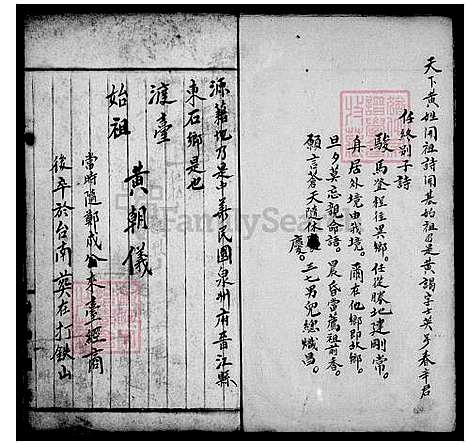 天下黃姓開祖詩開基始祖是黃謁字士英号春辛君
任終別子詩
駿馬登程往異鄉。任從勝地建剛常。
年居外境由我境。爾在他鄉即故鄉。
旦夕莫忘親命語。晨昏當薦祖前香。
願言蒼天隨休慶。三七男兒總熾昌。
源籍地乃是中華民國泉州府晋江縣
東石鄉是也
渡臺
始祖 黃朝儀
當時隨鄭成公來臺經商
後卒於台南葬在打鐵山
FamilySea